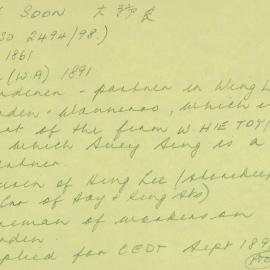 SOON 大
SO 2494/98.)
1861
(W.A) 1891
partner in Wing L
den - Wanneroo, which i
t of the firm W. HIE TOY
which Suey Sing is a
tner.
usin of Hing Lee (storekeep
nr of Hay + King Sts)
reman of workers on
den.
plied for CEDT Sept 189